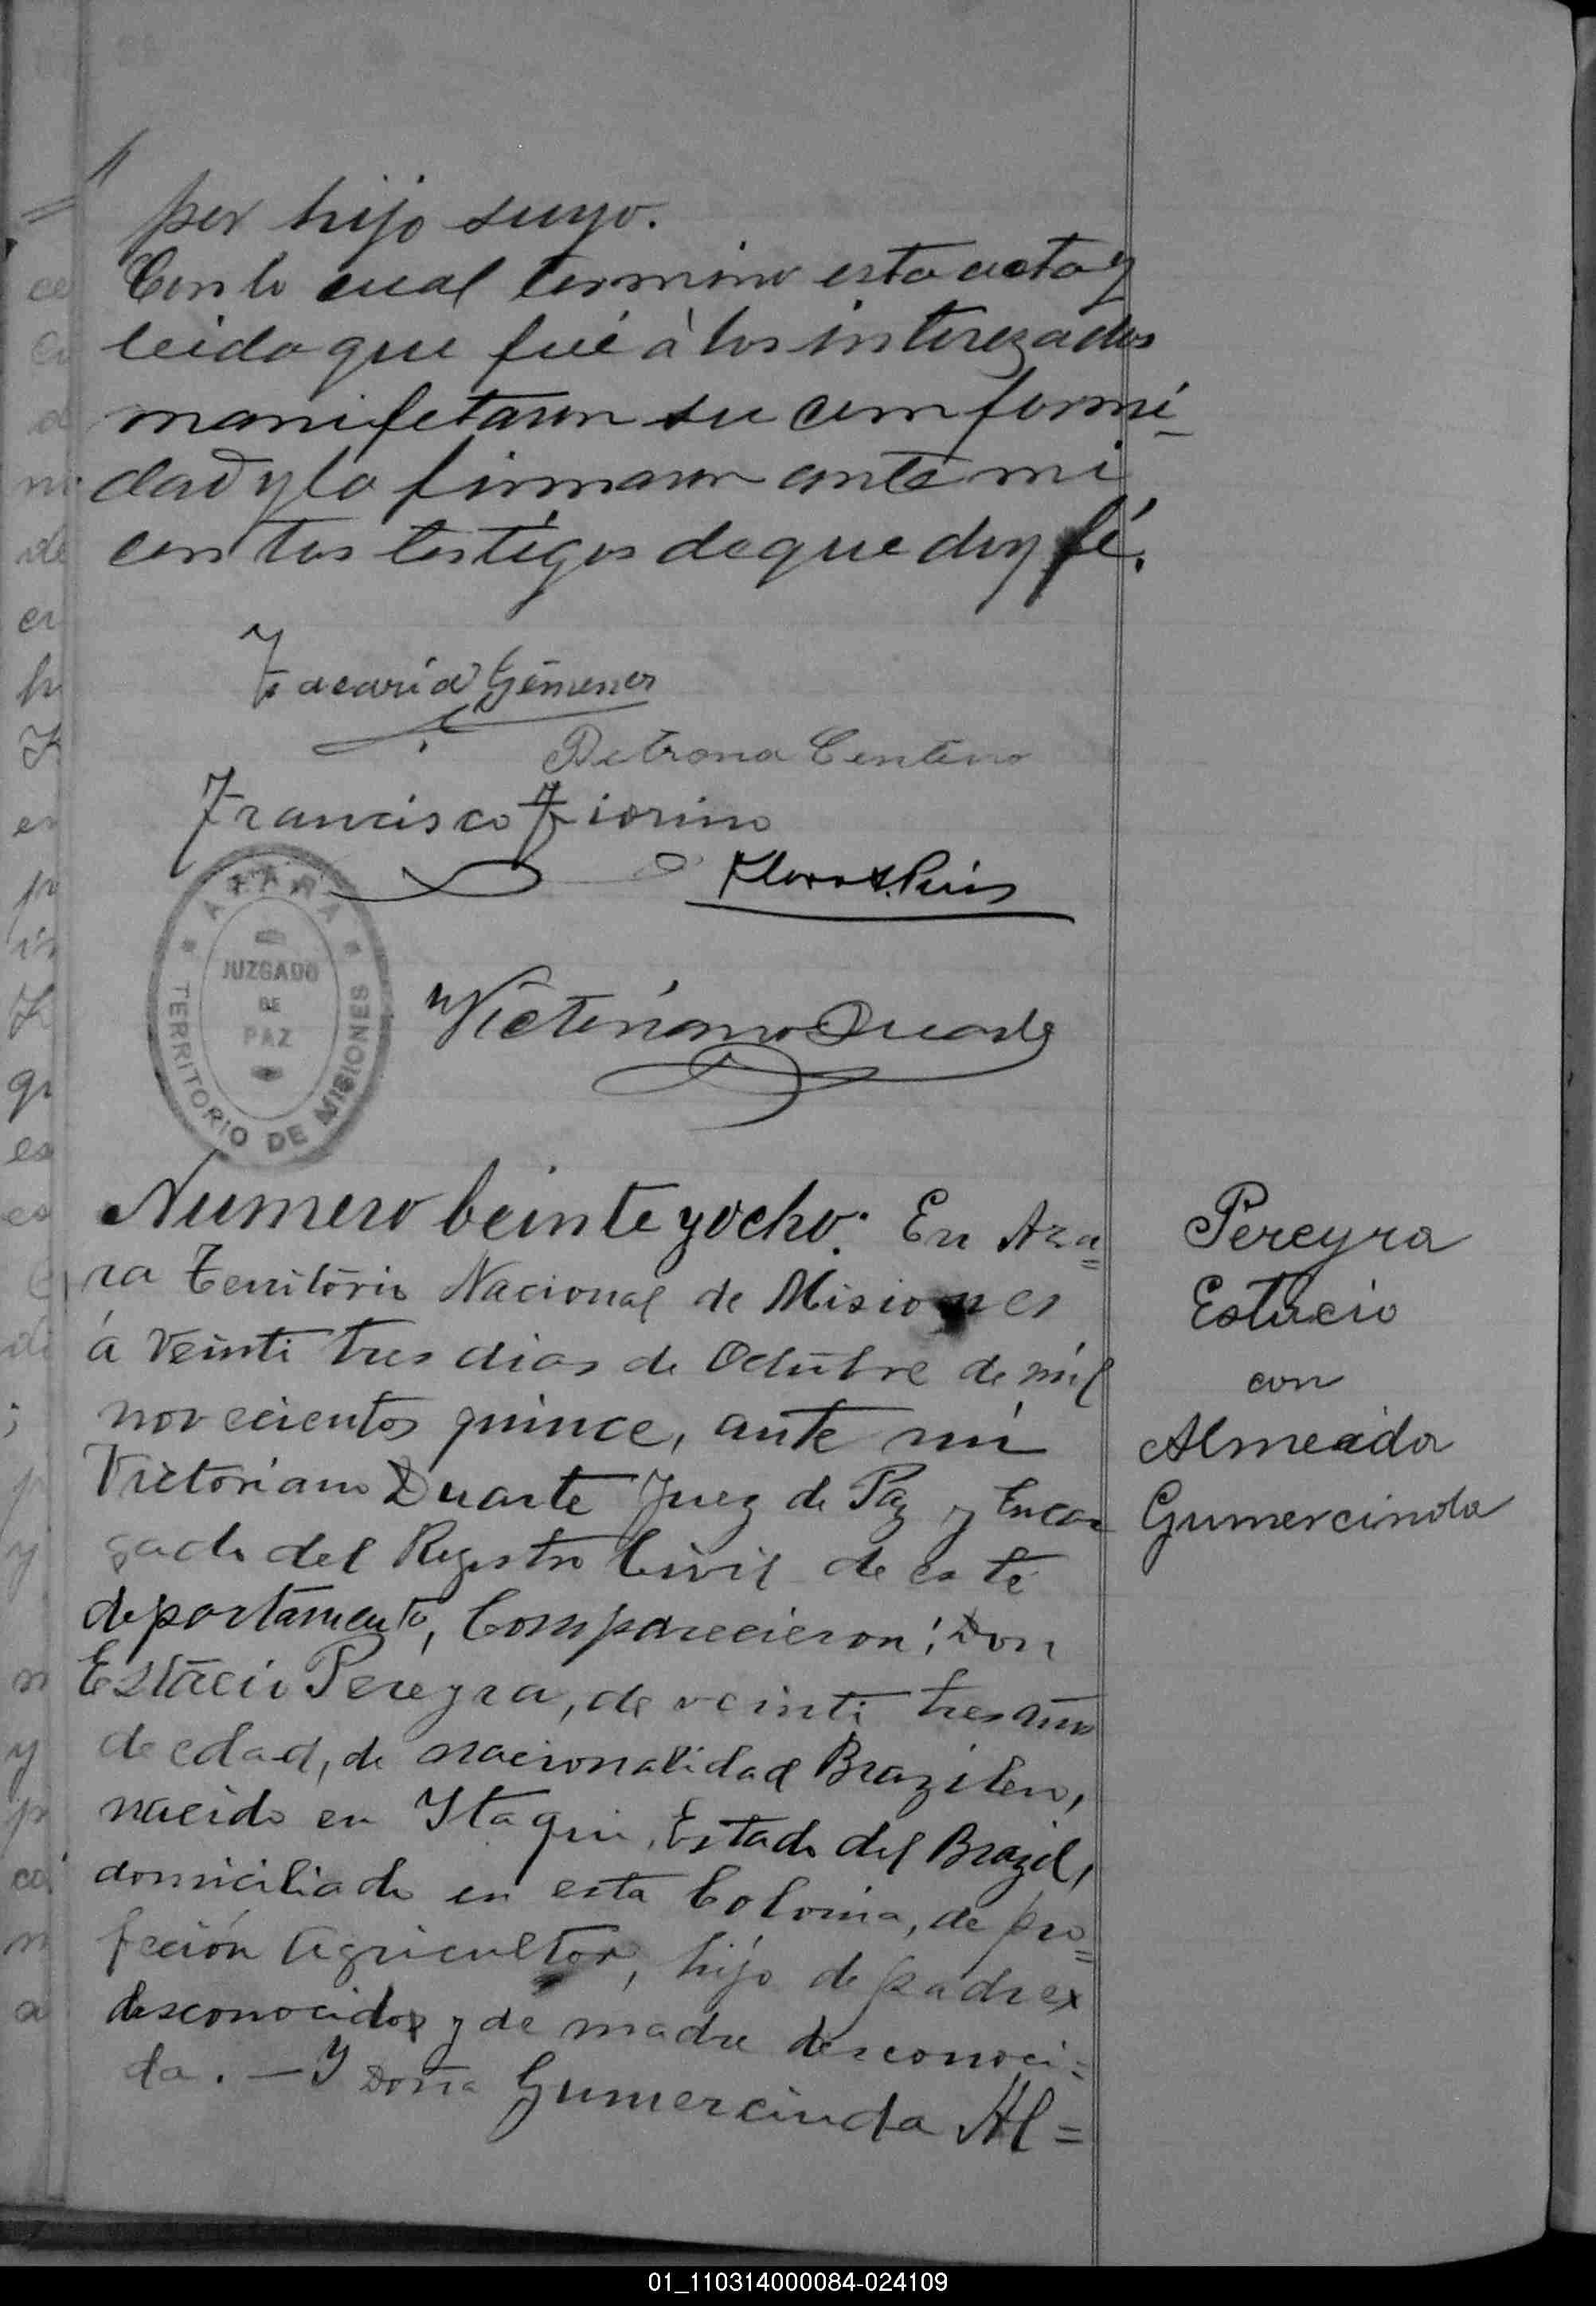 por hijo suyo.
Con lo cual termino esta acta y
leida que fué à los interezados
manifetaron su comformi-
dad y la firmaron ante mi
con los testigos de que doy fé.
Zacaria Gimenes
Petrona Centeno
Francisco Fiorino
AZARA
JUZGADO
DE
PAZ
TERRITORIO DE MISIONES
Victoriano Duarte
Numero beinte y ocho: En Aza=
ra Território Nacional de Misiones
á veinti tres dias de Octubre de mil
novecientos quince, ante mi
Victoriano Duarte Juez de Paz y Encar
gado del Registro Civil de este
departamento, Comparecieron: Don
Estacio Pereyra, de veinti tres años
de edad, de nacionalidad Brazilero,
nacido en Itaqui, Estado del Brazil,
domiciliado en esta Colonia, de pro=
feción Agricultor, hijo de padrex
desconocidox y de madre desconoci=
da. — Y Doña Gumercinda Al=
Pereyra
Estacio
con
Almeida
Gumercinda
01_110314000084-024109